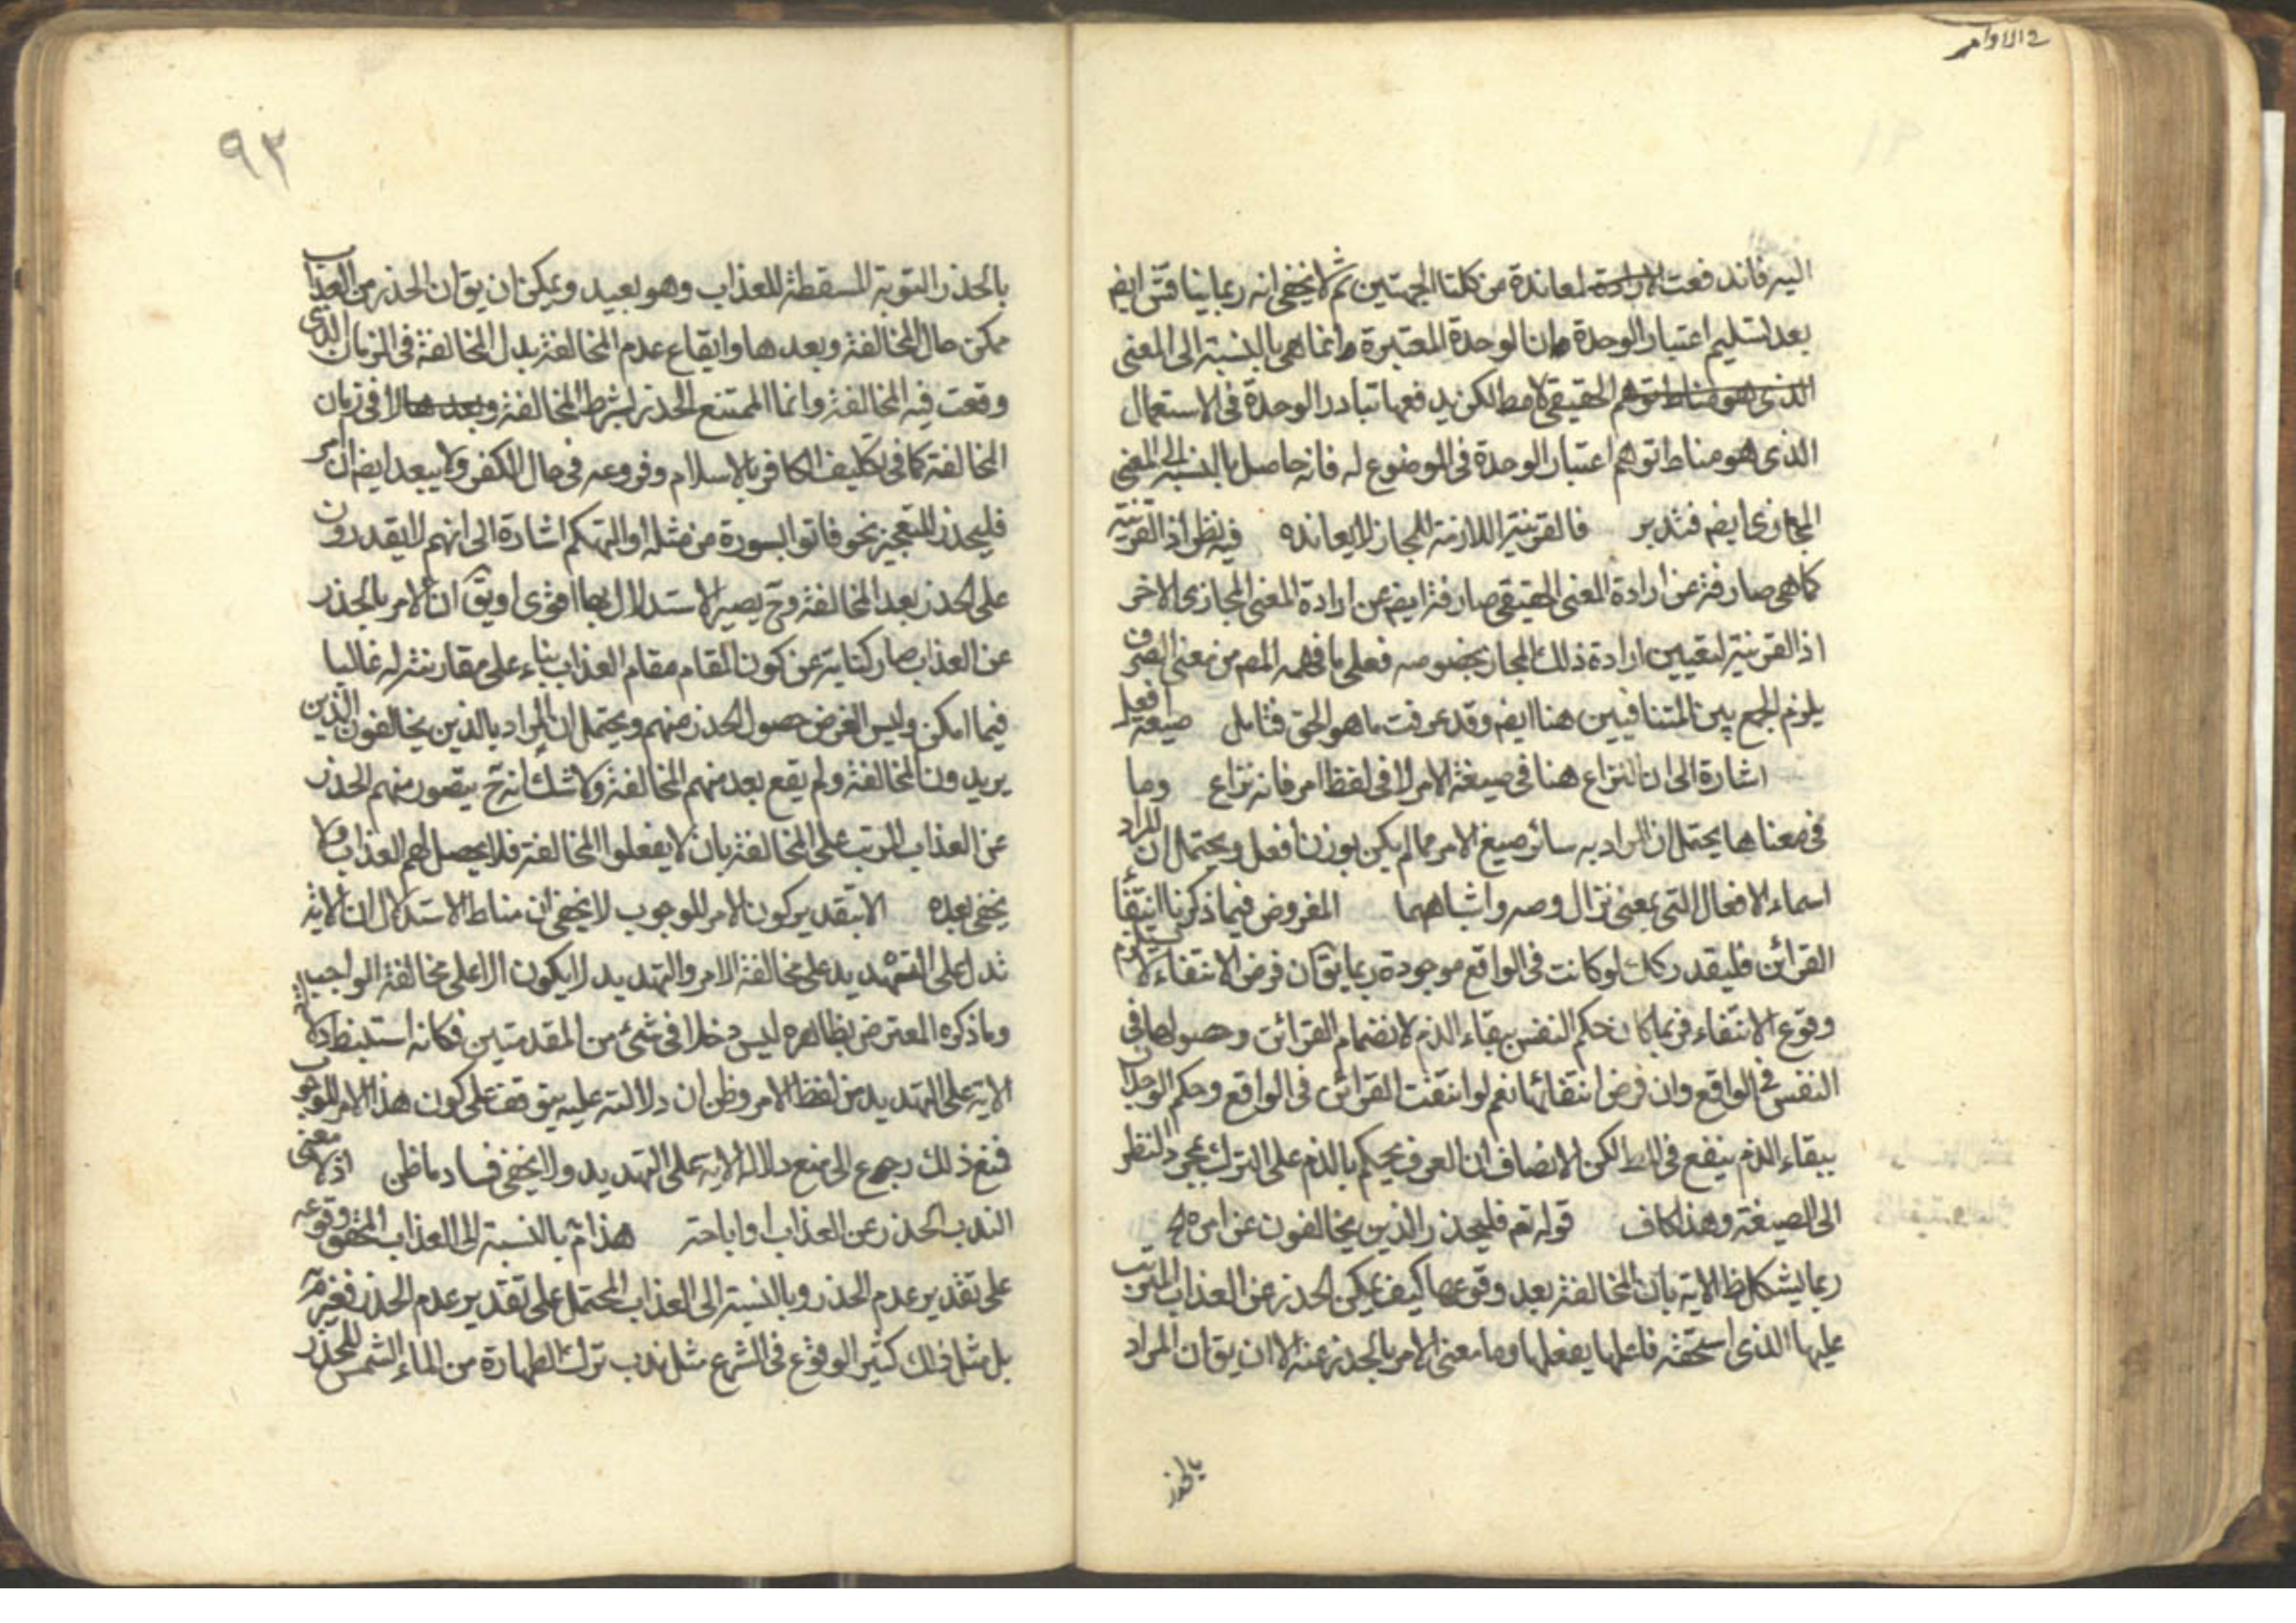 في الاوامر
اليه فاندفعت المعاندة من كلتا الجهتين ثم لا يخفى انه ربما يناقش ايضا
بعد تسليم اعتبار الوحدة وان الوحدة المعتبرة انما هي بالنسبة الى المعنى
الحقيقي لا مط لكن يدفعها تبادر الوحدة في الاستعمال
الذى هو مناط توهم اعتبار الوحدة في الموضوع له فانه حاصل بالنسبة الى المعنى
المجازى ايضا فتدبر فالقرينة اللازمة للمجاز لا يعانده فيه نظر اذ القرينة
كما هي صارفة عن ارادة المعنى الحقيقي صارفة ايضا عن ارادة المعنى المجازى الاخر
اذ القرينة لتعيين ارادة ذلك المجاز بخصوصه فعلى ما فهمه المص من معنى الصرف
يلزم الجمع بين المتنافيين هنا ايضا وقد عرفت ما هو الحق فتامل صيغة افعل
اشارة الى ان النزاع هنا في صيغة الامر لا في لفظ امر فانه نزاع وما
في معناها يحتمل ان المراد به سائر صيغ الامر مما لم يكن بوزن افعل ويحتمل ان المراد
اسماء الافعال التي بمعنى نزال وصه واشباههما المفروض فيما ذكرنا انتفاء
القرائن فليقدر كك لو كانت في الواقع موجودة ربما يق ان فرض الانتفاء لا يستلزم
وقوع الانتفاء فربما كان حكم النفس ببقاء الذم لانضمام القرائن وحصولها في
النفس في الواقع وان فرض انتفائها نعم لو انتفت القرائن في الواقع وحكم الوجدان
ببقاء الذم ينفع في المط لكن الانصاف ان العرف يحكم بالذم على الترك بمجرد النظر
الى الصيغة وهذا كاف قوله تع فليحذر الذين يخالفون عن امره
ربما يشكل ظ الاية بان المخالفة بعد وقوعها كيف يمكن الحذر عن العذاب المترتب
عليها الذى استحقه فاعلها بفعلها وما معنى الامر بالحذر عنه الا ان يق ان المراد
بالحذر
٩٢
بالحذر التوبة المسقطة للعذاب وهو بعيد ويمكن ان يق ان الحذر من العذاب
ممكن حال المخالفة وبعدها وايقاع عدم المخالفة بدل المخالفة في الزمان الذى
وقعت فيه المخالفة وانما الممتنع الحذر بشرط المخالفة لا في زمان
المخالفة كما في تكليف الكافر بالاسلام وفروعه في حال الكفر ولا يبعد ايضا ان امر
فليحذر للتعجيز نحو فاتوا بسورة من مثله او التهكم اشارة الى انهم لا يقدرون
على الحذر بعد المخالفة وح يصير الاستدلال بها اقوى او يق ان الامر بالحذر
عن العذاب صار كناية عن كون المقام مقام العذاب بناء على مقارنته له غالبا
فيما امكن وليس الغرض حصول الحذر منهم ويحتمل ان المراد بالذين يخالفون الذين
يريدون المخالفة ولم يقع بعد منهم المخالفة ولا شك انه ح يتصور منهم الحذر
عن العذاب المرتب على المخالفة بان لا يفعلوا المخالفة فلا يحصل لهم العذاب ولا
يخفى بعده الا بتقدير كون الامر للوجوب لا يخفى ان مناط الاستدلال ان الاية
تدل على التهديد على مخالفة الامر والتهديد لا يكون الا على مخالفة الواجب
وما ذكره المعترض بظاهره ليس دخلا في شئ من المقدمتين فكانه استنبط دلالة
الاية على التهديد من لفظ الامر وظن ان دلالته عليه يتوقف على كون هذا الامر للوجوب
فمنع ذلك رجوع الى منع دلالة الاية على التهديد ولا يخفى فساد ما ظن اذ لا معنى
لندب الحذر عن العذاب او اباحته هذا تم بالنسبة الى العذاب المحقق وقوعه
على تقدير عدم الحذر وبالنسبة الى العذاب المحتمل على تقدير عدم الحذر فغير تم
بل مثل ذلك كثير الوقوع في الشرع مثل ندب ترك الطهارة من الماء الشمس للحذر